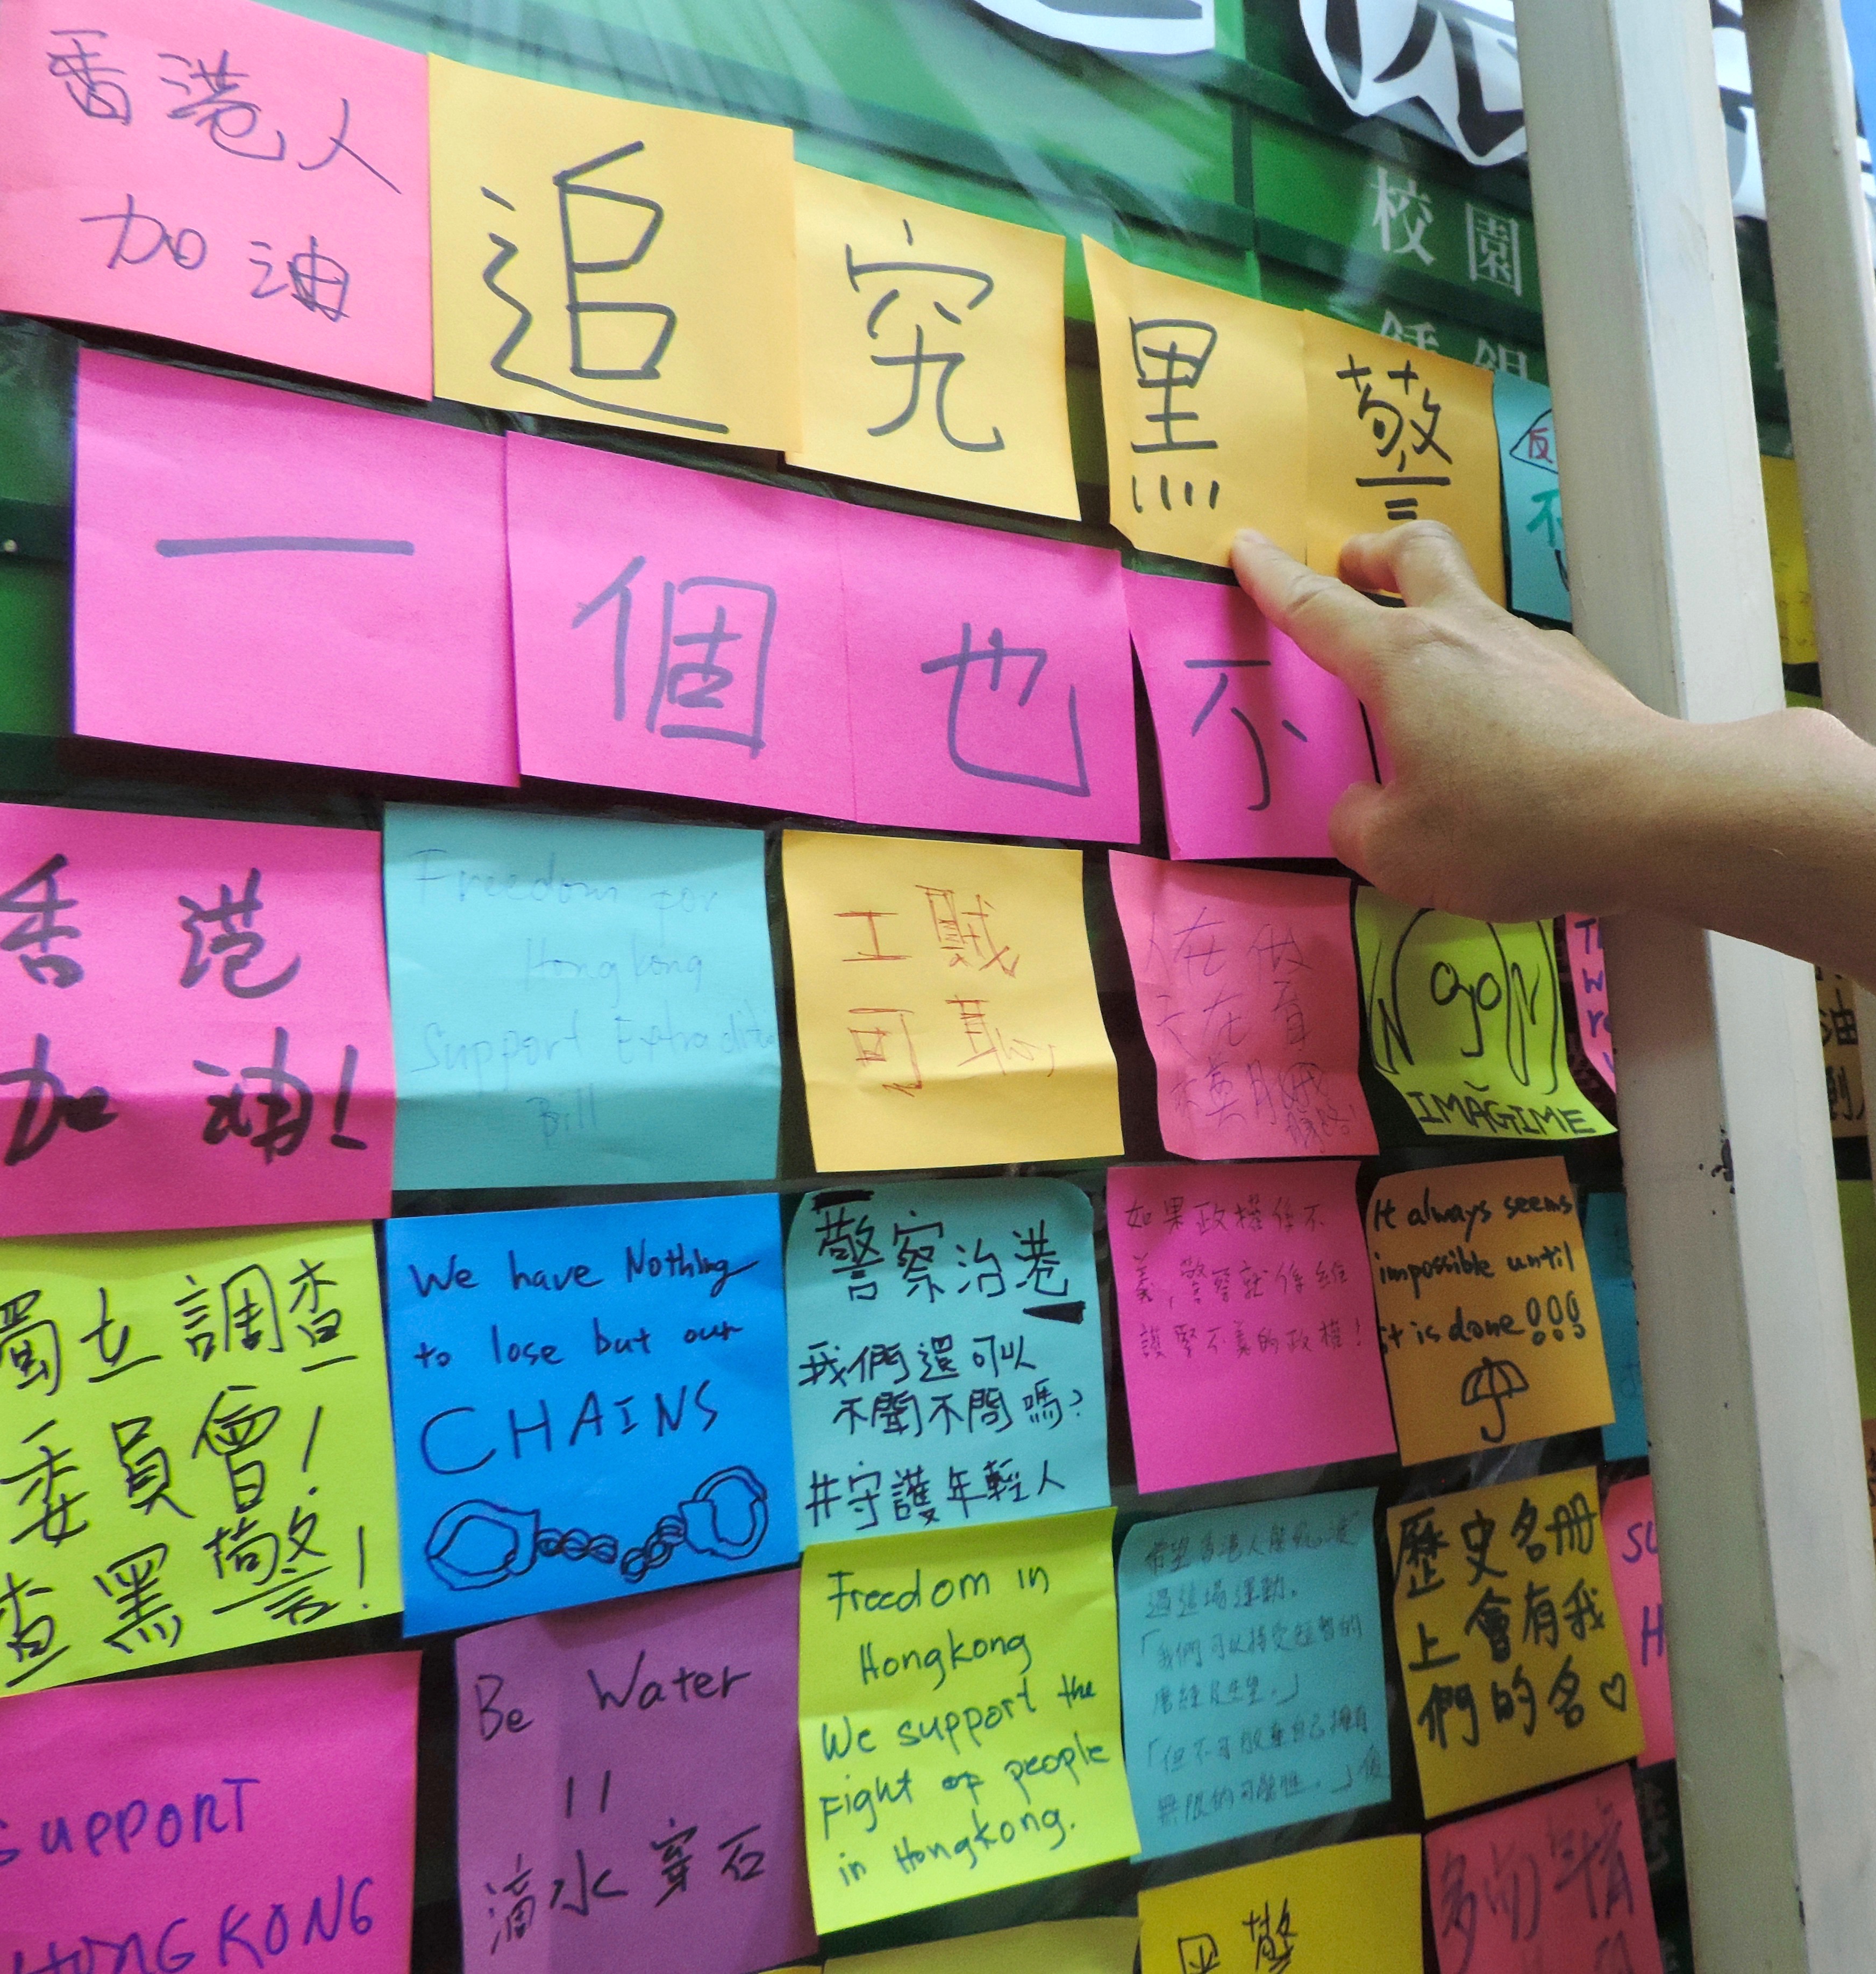 香港人
加油
追
究
黑
警
校園
反
不
一
個
也
不
香港
加油!
Freedom for
Hong Kong
Support Extradition
Bill
工賊
可恥
人在做
天在看
IMAGIME
獨立調查
委員會!
查黑警!
We have Nothing
to lose but our
CHAINS
警察治港
我們還可以
不聞不問嗎?
#守護年輕人
如果政權係不
義,警察就係維
護緊不義的政權!
It always seems
impossible until
it is done!!!
Support
HONG KONG
Be Water
||
滴水穿石
Freedom in
Hongkong
We support the
Fight of people
in Hongkong.
希望香港人
過這場運動。
「我們可以接受短暫的
「但不可放棄自己擁有
無限的可能性。」
歷史名冊
上會有我
們的名♡
SU
H
黑警